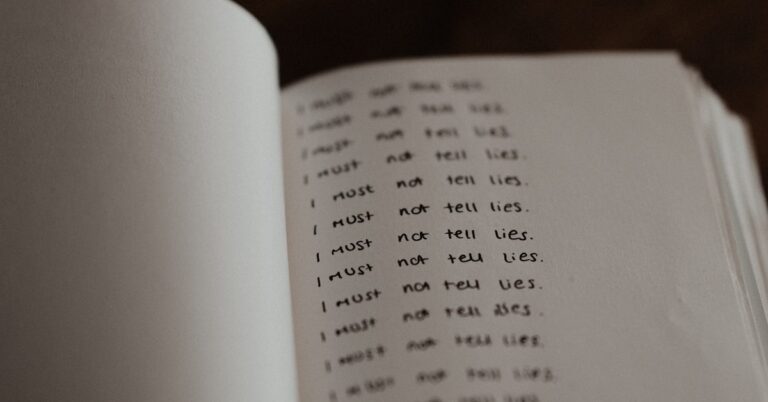 I must not
I must not tell lies.
I must not tell lies.
I must not tell lies.
I must not tell lies.
I must not tell lies.
I must not tell lies.
I must not tell lies.
I must not tell lies.
I must not tell lies.
I must not tell lies.
I must not tell lies.